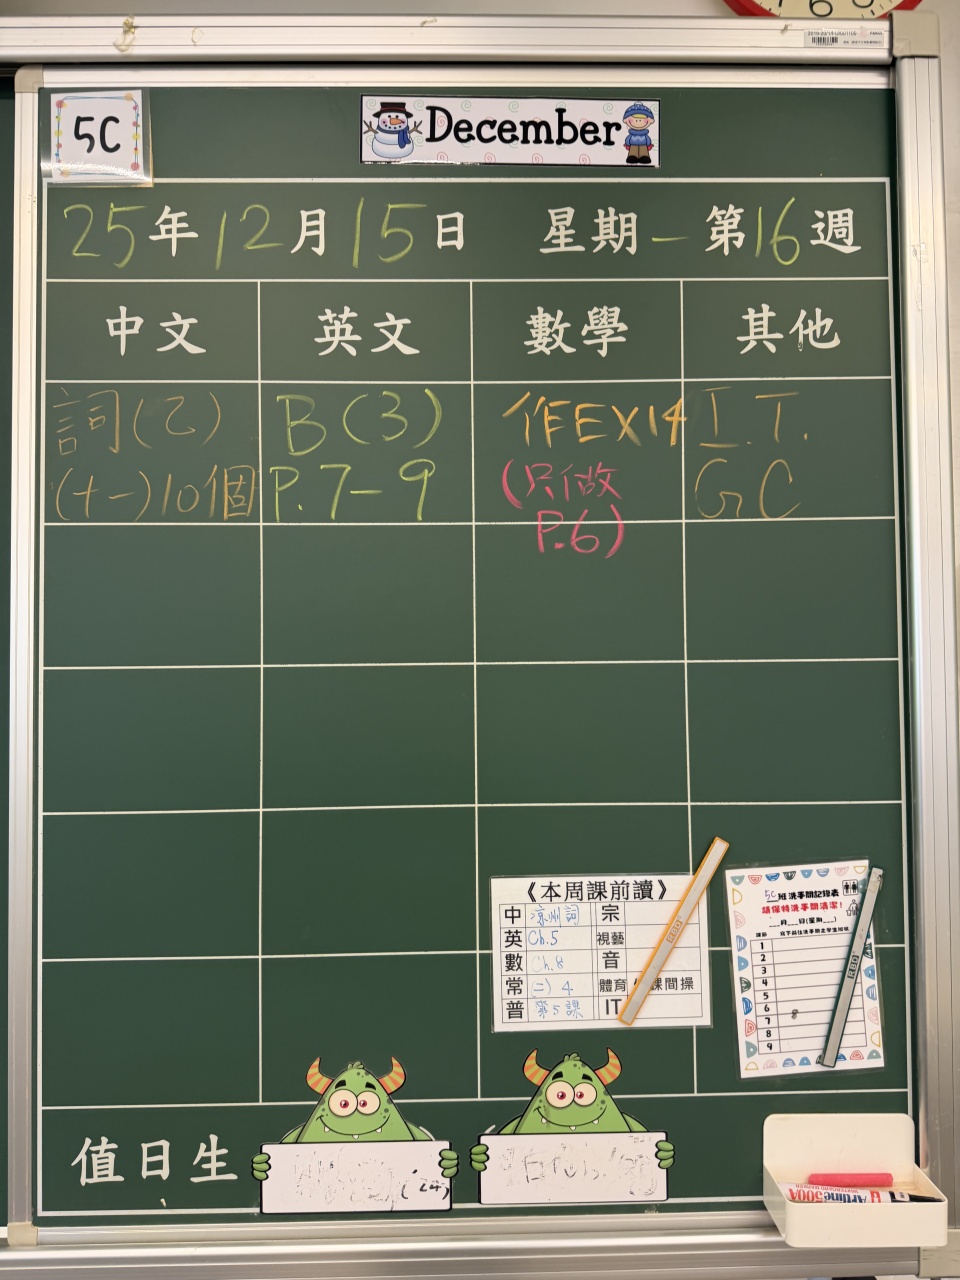 5C
December
25年12月15日 星期一 第16週
中文 英文 數學 其他
詞(乙) B(3) 作EX14 I.T.
(十一)10個 P.7-9 (只做 GC
P.6)
《本周課前讀》
中 涼州詞 宗
英 Ch.5 視藝
數 Ch.8 音
常 (二) 4 體育 課間操
普 第5課 IT
5C班洗手間記錄表
請保持洗手間清潔!
月 日(星期 )
1
2
3
4
5
6
7
8
9
值日生
(24)
Artline 500A